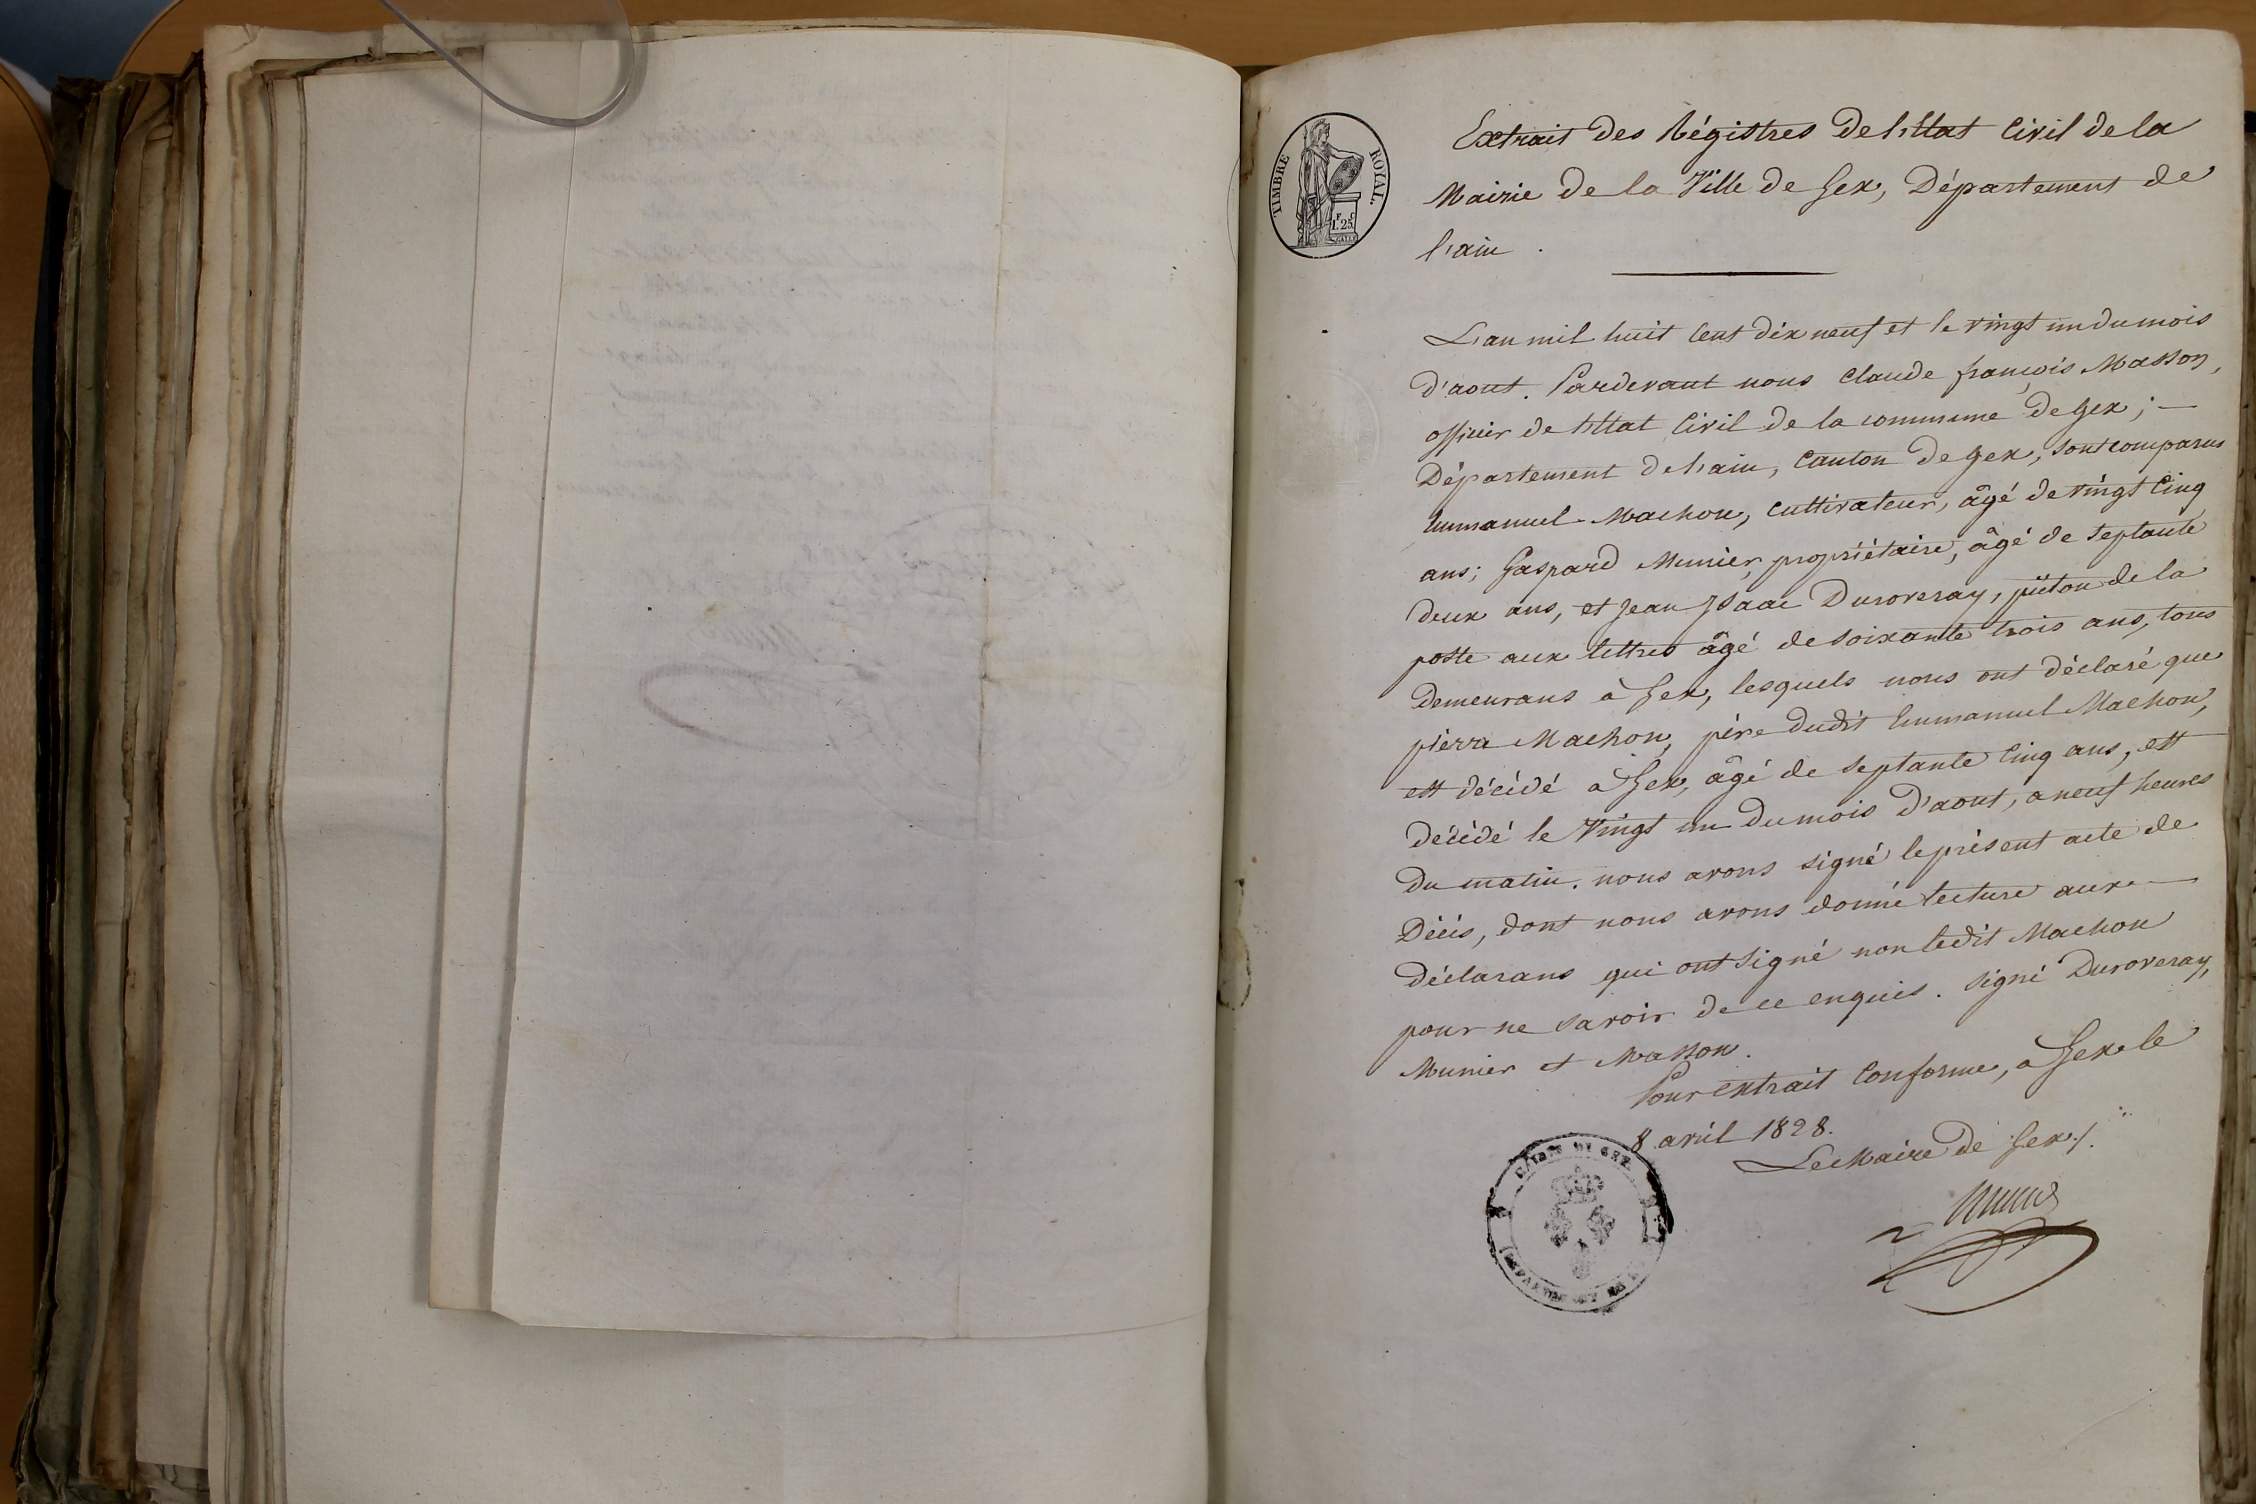 TIMBRE ROYAL.
F C
1. 25
Extrait des Régistres de l'Etat Civil de la
Mairie de la Ville de Gex, Département de
l'ain.
L'an mil huit Cent dix neuf et le vingt un du mois
d'aout. Pardevant nous Claude françois Masson,
officier de l'Etat Civil de la commune de Gex;
Département de l'ain, Canton de gex, sont comparus
Emmanuel Machon, Cultivateur, âgé de vingt Cinq
ans; Gaspard Munier, propriétaire, âgé de septante
deux ans, et Jean Isaac Duroveray, piéton de la
poste aux lettres âgé de soixante trois ans, tous
demeurans à Gex, lesquels nous ont déclaré que
pierre Machon, père dudit Emmanuel Machon,
est décédé a Gex, âgé de septante Cinq ans, est
décédé le Vingt un du mois d'aout, a neuf heures
du matin. nous avons signé le présent acte de
Décès, dont nous avons donné lecture aux
déclarans qui ont signé non ledit Machon
pour ne savoir de ce enquis. Signé Duroveray,
Munier et Masson.
Pour extrait Conforme, a Gex le
8 avril 1828.
Le Maire de Gex
MAIRIE DE GEX
DEPARTEMENT DE